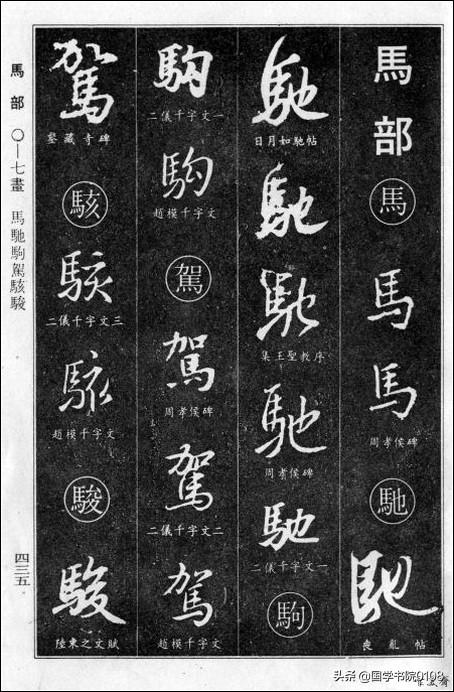 馬部
馬
馬
馬
周孝侯碑
馳
馳
喪亂帖
馳
日月如馳帖
馳
馳
集王聖教序
馳
周孝侯碑
馳
二儀千字文一
駒
駒
二儀千字文一
駒
趙模千字文
駕
駕
周孝侯碑
駕
二儀千字文二
駕
趙模千字文
駕
藏寺碑
駭
駭
二儀千字文三
駭
趙模千字文
駿
駿
陸柬之文賦
馬部 〇—七畫 馬馳駒駕駭駿
四三五
头条 @国学书院9108